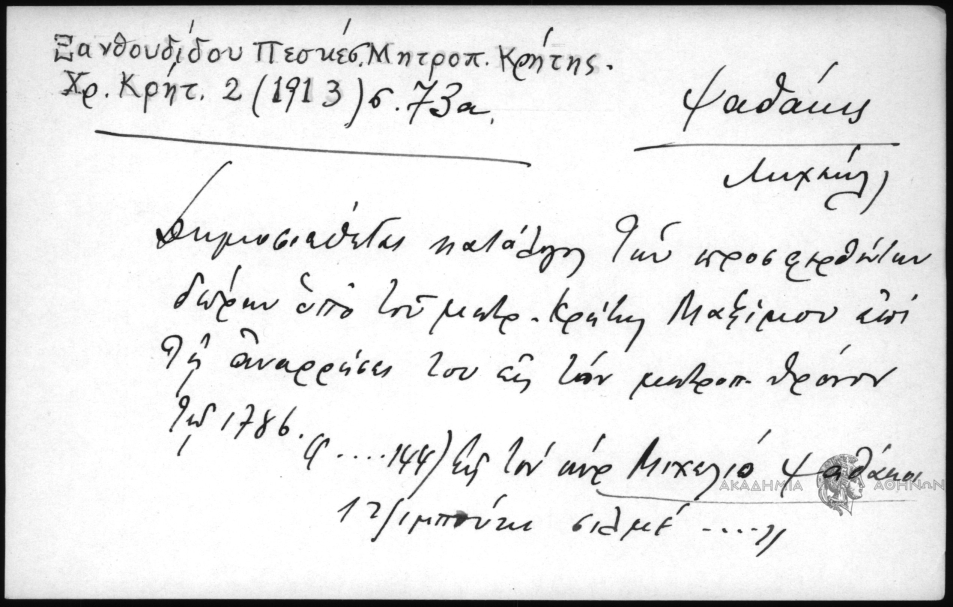 Ξανθουδίδου Πεσκές Μητροπ. Κρήτης.
Χρ. Κρήτ. 2 (1913) σ. 73α.
Ψαθάκης
Μιχαήλ
Δημοσιεύεται κατάλογος τῶν προσφερθέντων
δώρων ὑπὸ τοῦ μητρ. Κρήτης Μαξίμου ἐπὶ
τῇ ἀναρρήσει του εἰς τὸν μητροπ. θρόνον
τῷ 1786.
" ....144) εἰς τὸν κύρ Μιχελιό Ψαθάκι
1 τζιμπούκι σιλμέ ...."
ΑΚΑΔΗΜΙΑ ΑΘΗΝΩΝ